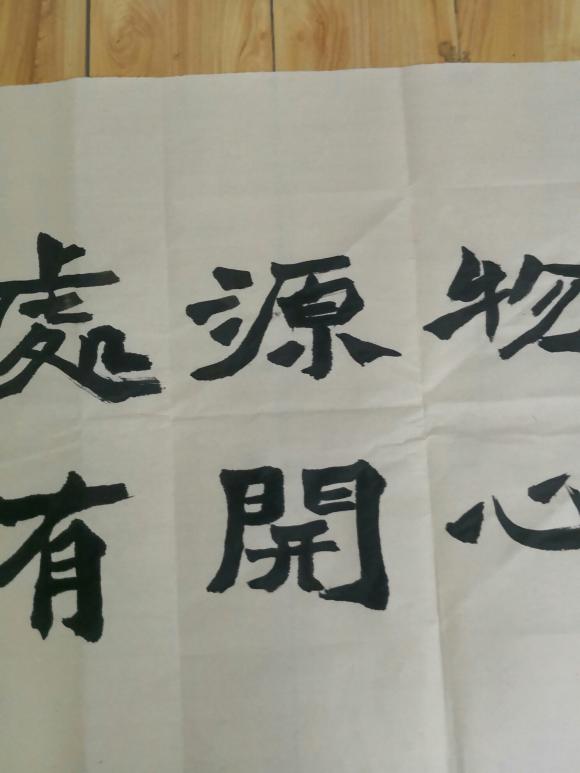 物心
源開
處有